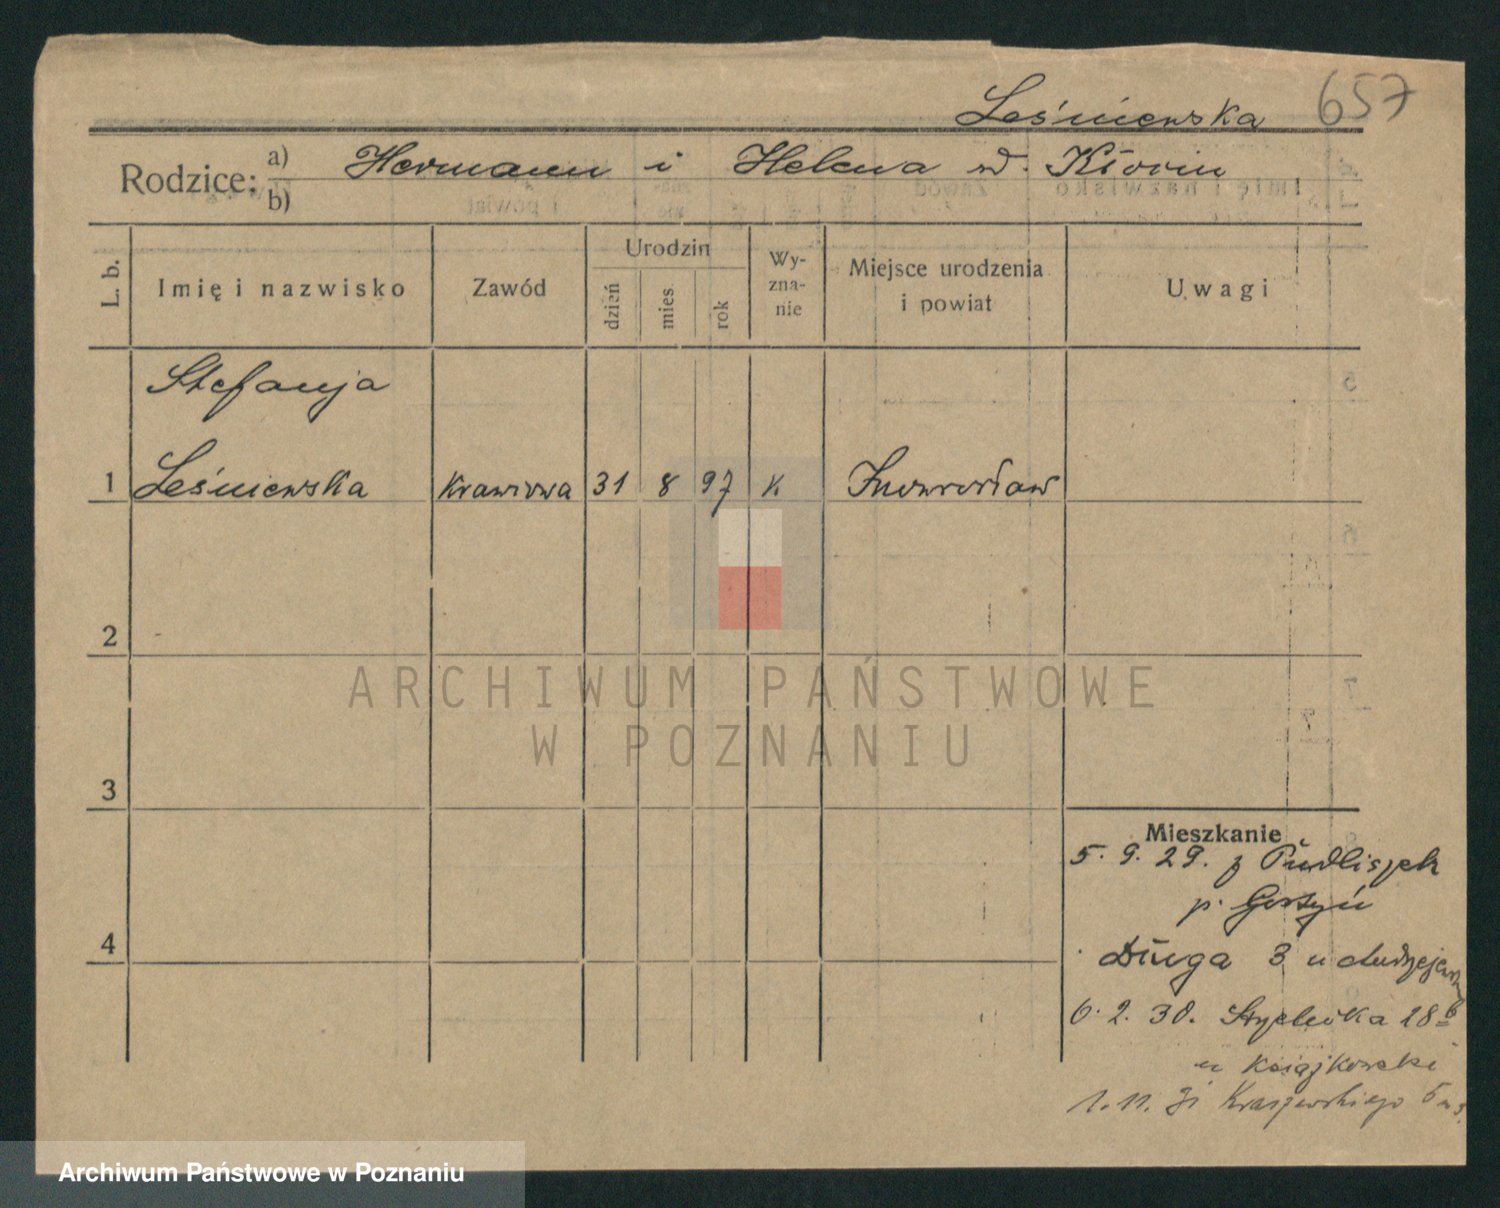 Leśniewska 657
Rodzice: a) Hermann i Helena
b)
L. b.
Imię i nazwisko
Zawód
Urodzin
dzień
mies
rok
Wy-
zna-
nie
Miejsce urodzenia
i powiat
Uwagi
Stefanja
1 Leśniewska Krawcowa 31 8 97 K Inowrocław
2
3
4
ARCHIWUM PAŃSTWOWE
W POZNANIU
Mieszkanie
5. 9. 29. z Pudliszek
p. Gostyń
Długa 3 u
6. 2. 30. 28
u
1. 11. Kraszewskiego 5
Archiwum Państwowe w Poznaniu